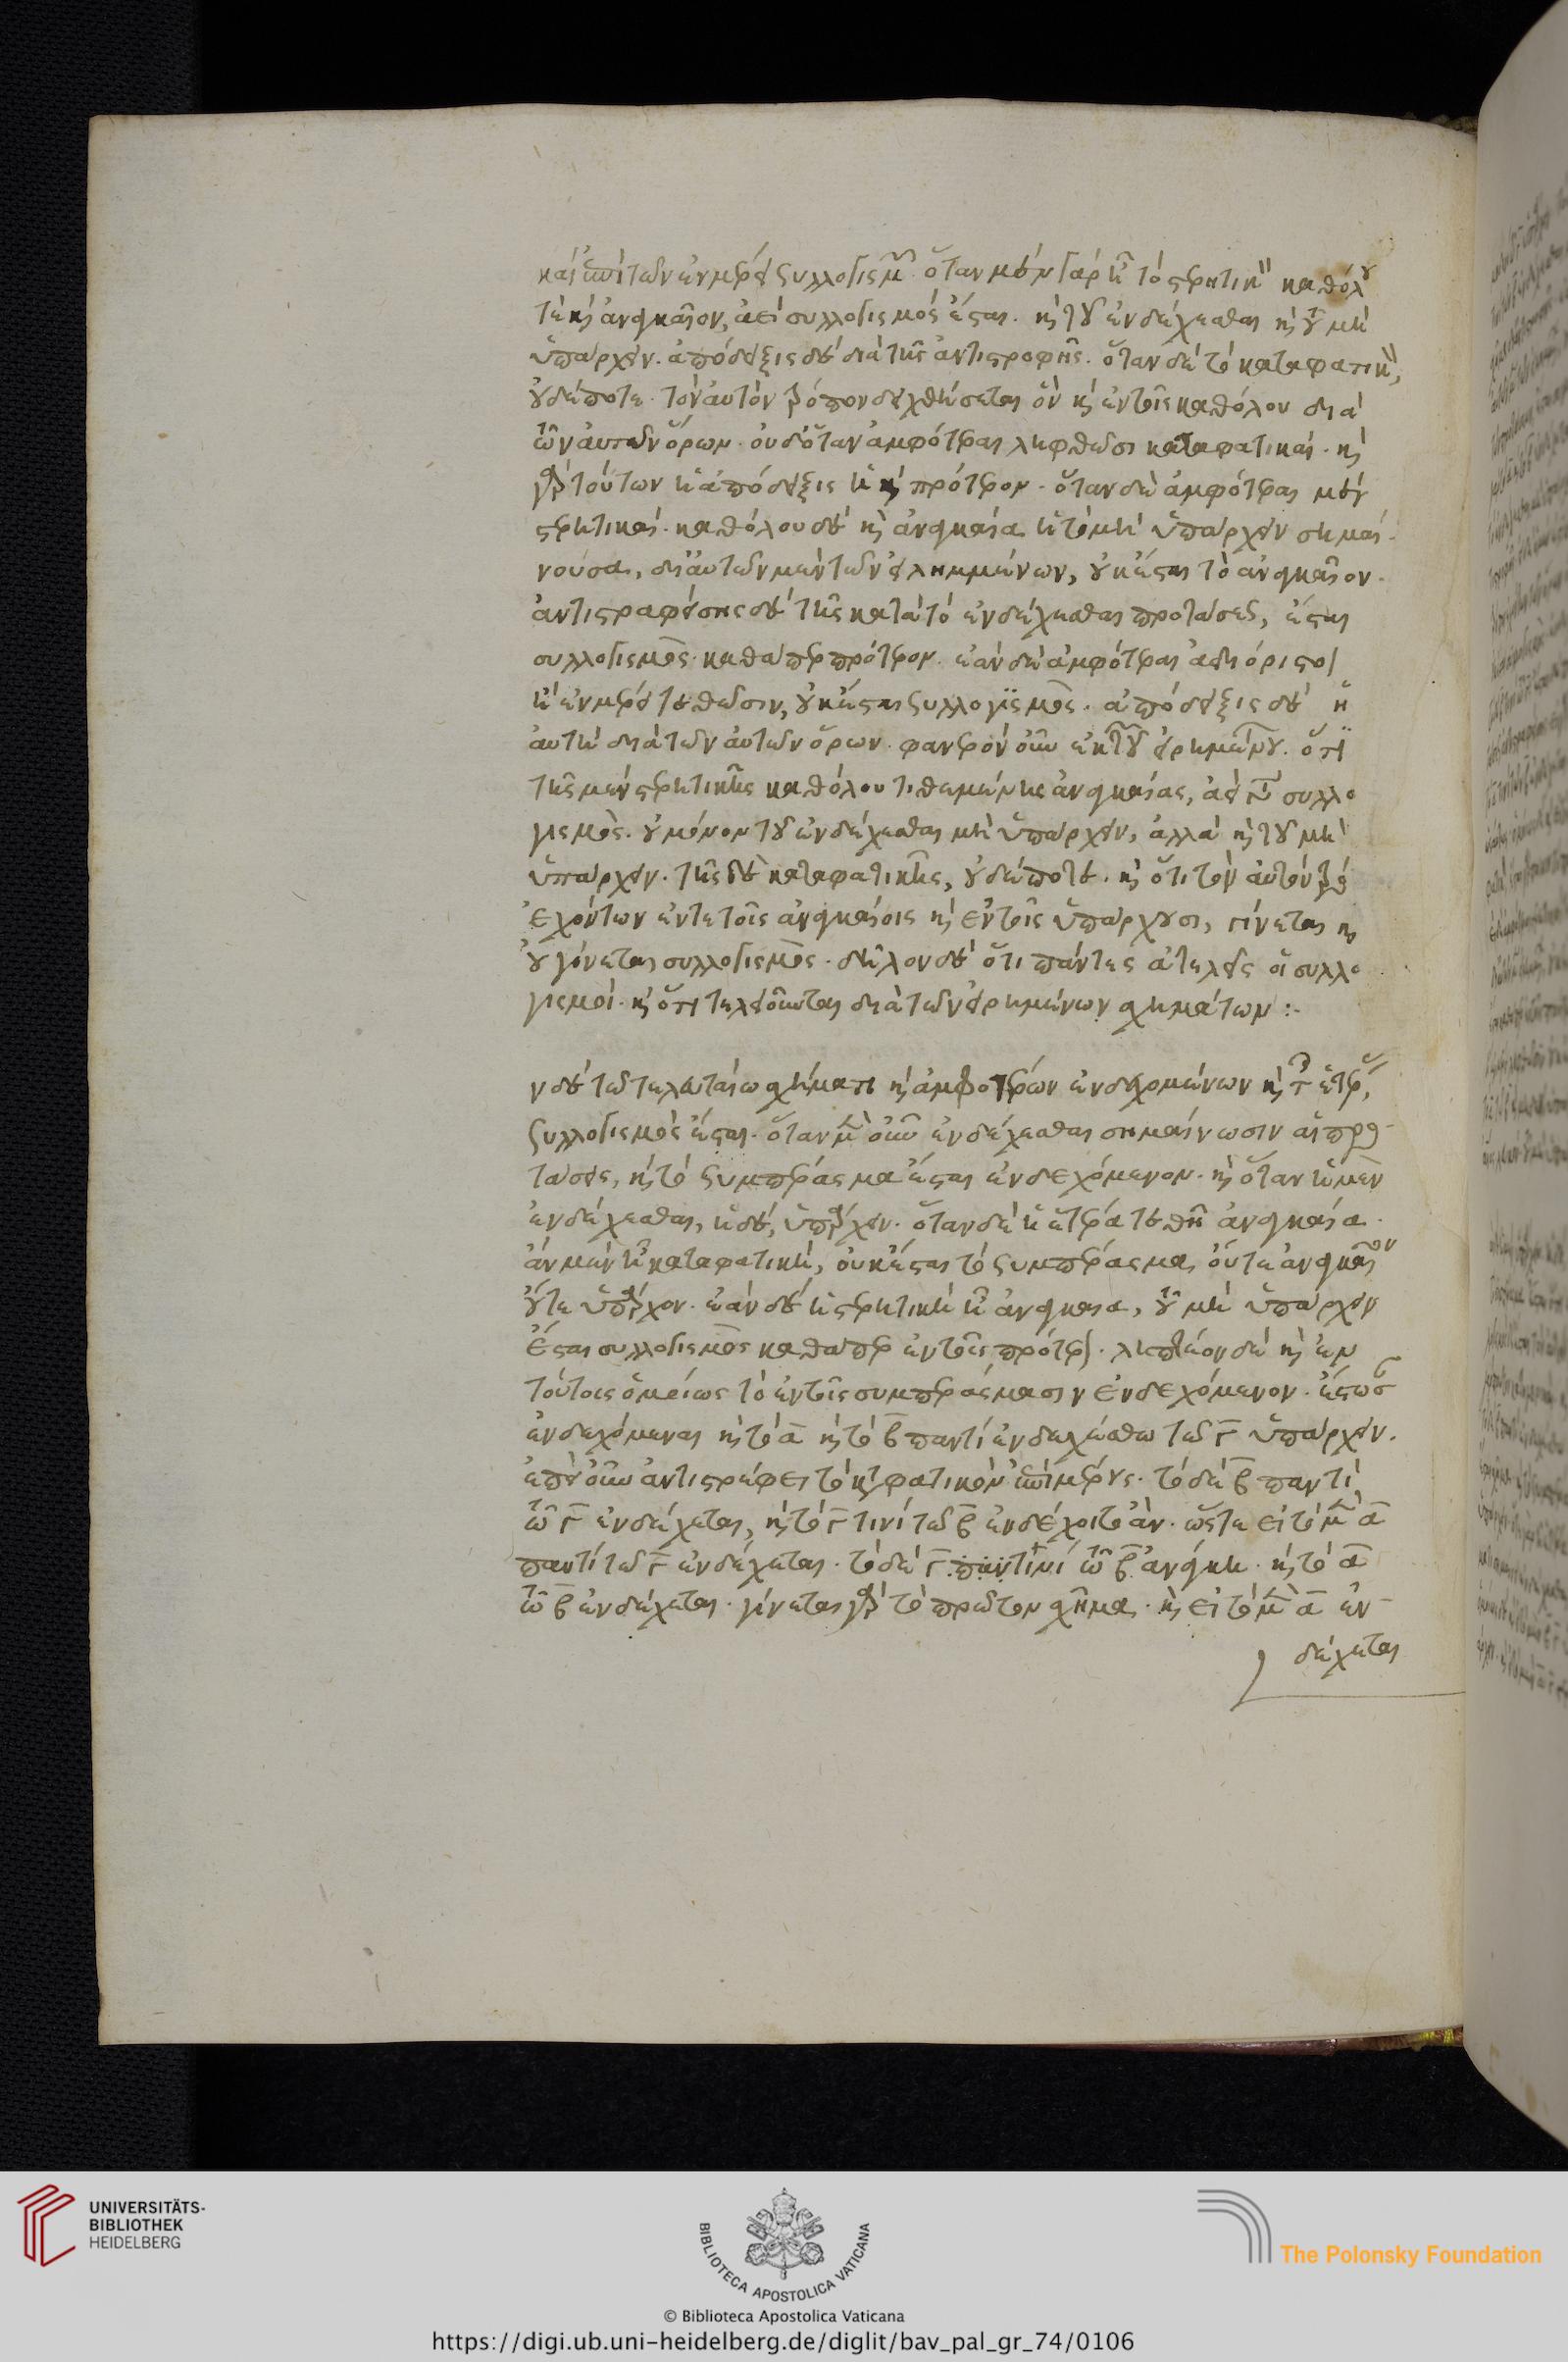 καὶ ἐπὶ τῶν ἐν μέρει συλλογισμῶν. ὅταν μὲν γὰρ ᾖ τὸ στερητικὸν καθόλου
τὲ καὶ ἀναγκαῖον, ἀεὶ συλλογισμὸς ἔσται. καὶ τοῦ ἐνδέχεσθαι καὶ τοῦ μὴ
ὑπάρχειν. ἀπόδειξις δὲ διὰ τῆς ἀντιστροφῆς. ὅταν δὲ τὸ καταφατικὸν,
οὐδέποτε. τὸν αὐτὸν τρόπον δειχθήσεται ὃν καὶ ἐν τοῖς καθόλου διὰ
τῶν αὐτῶν ὅρων. οὐδ' ὅταν ἀμφότεραι ληφθῶσι καταφατικαί. καὶ
γὰρ τούτων ἡ ἀπόδειξις ἡ καὶ πρότερον. ὅταν δὲ ἀμφότεραι μὲν
στερητικαί. καθόλου δὲ καὶ ἀναγκαία ἡ τὸ μὴ ὑπάρχειν σημαί-
νουσα, δι' αὐτῶν μὲν τῶν εἰλημμένων, οὐκ ἔσται τὸ ἀναγκαῖον.
ἀντιστραφείσης δὲ τῆς κατὰ τὸ ἐνδέχεσθαι προτάσεως, ἔσται
συλλογισμὸς καθάπερ πρότερον. ἐὰν δὲ ἀμφότεραι ἀδιόριστοι
ἢ ἐν μέρει τεθῶσιν, οὐκ ἔσται συλλογισμός. ἀπόδειξις δὲ ἡ
αὐτὴ διὰ τῶν αὐτῶν ὅρων. φανερὸν οὖν ἐκ τῶν εἰρημένων. ὅτι
τῆς μὲν στερητικῆς καθόλου τιθεμένης ἀναγκαίας, ἀεὶ γίνεται συλλο
γισμὸς. οὐ μόνον τοῦ ἐνδέχεσθαι μὴ ὑπάρχειν, ἀλλὰ καὶ τοῦ μὴ
ὑπάρχειν. τῆς δὲ καταφατικῆς, οὐδέποτε. καὶ ὅτι τὸν αὐτὸν τρόπον
ἐχόντων ἔν τε τοῖς ἀναγκαίοις καὶ ἐν τοῖς ὑπάρχουσι, γίνεται καὶ
οὐ γίνεται συλλογισμός. δῆλον δὲ ὅτι πάντες ἀτελεῖς οἱ συλλο
γισμοί. καὶ ὅτι τελειοῦνται διὰ τῶν εἰρημένων σχημάτων :-
ν δὲ τῶ τελευταίω σχήματι καὶ ἀμφοτέρων ἐνδεχομένων καὶ τῆς ἑτέρας,
συλλογισμὸς ἔσται. ὅταν μὲν οὖν ἐνδέχεσθαι σημαίνωσιν αἱ προ-
τάσεις, καὶ τὸ συμπέρασμα ἔσται ἐνδεχόμενον. καὶ ὅταν ἡ μὲν
ἐνδέχεσθαι, ἡ δὲ, ὑπάρχειν. ὅταν δὲ ἡ ἑτέρα τεθῆ ἀναγκαία.
ἂν μὲν ᾖ καταφατικὴ, οὐκ ἔσται τὸ συμπέρασμα οὔτε ἀναγκαῖον
οὔτε ὑπάρχον. ἐὰν δὲ ἡ στερητικὴ ᾖ ἀναγκαία, τοῦ μὴ ὑπάρχειν
ἔσται συλλογισμὸς καθάπερ ἐν τοῖς πρότερον. ληπτέον δὲ καὶ ἐν
τούτοις ὁμοίως τὸ ἐν τοῖς συμπεράσμασιν ἐνδεχόμενον. ἔστωσαν
ἐνδεχόμεναι καὶ τὸ α καὶ τὸ β παντὶ ἐνδεχέσθω τῶ γ ὑπάρχειν.
ἐπεὶ οὖν ἀντιστρέφει τὸ καταφατικὸν ἐπὶ μέρους. τὸ δὲ β παντὶ
τῶ γ ἐνδέχεται, καὶ τὸ γ τινὶ τῶ β ἐνδέχοιτο ἄν. ὥστε εἰ τὸ μὲν α
παντὶ τῶ γ ἐνδέχεται. τὸ δὲ γ τινὶ τῶ β ἀνάγκη. καὶ τὸ α
τῶ β ἐνδέχεται. γίνεται γὰρ τὸ πρῶτον σχῆμα. καὶ εἰ τὸ μὲν α ἐν-
δέχεται
UNIVERSITÄTS-
BIBLIOTHEK
HEIDELBERG
BIBLIOTECA APOSTOLICA VATICANA
The Polonsky Foundation
© Biblioteca Apostolica Vaticana
https://digi.ub.uni-heidelberg.de/diglit/bav_pal_gr_74/0106